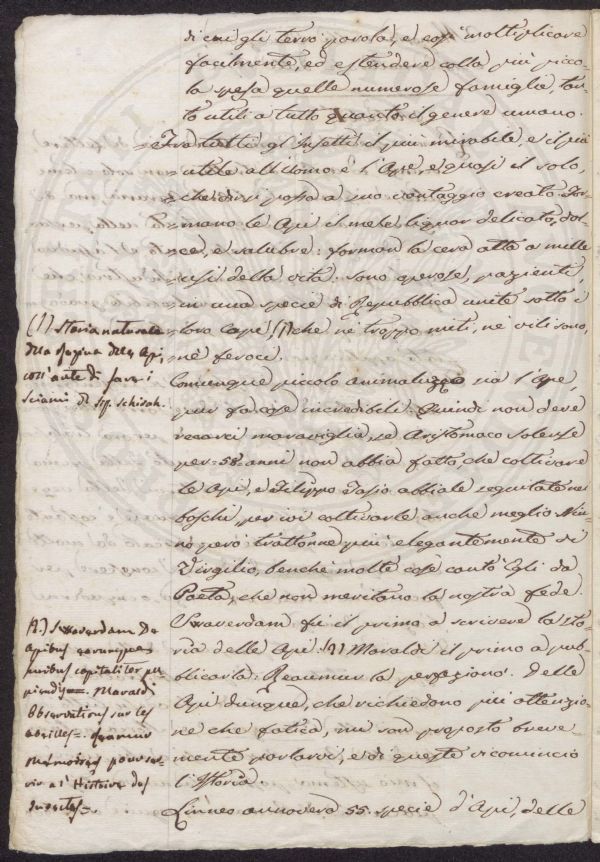 di cui gli terrò parola, e così moltiplicare
facilmente, ed estendere colla più picco-
la spesa quelle numerose famiglie, tan-
to utili a tutto quanto il genere umano.
Fra tutti gl'Insetti il più mirabile, e il più
utile all'Uomo è l'Ape, e quasi il solo,
che dirsi possa a suo vantaggio creato. For-
mano le Api il mele, liquor delicato, dol-
ce, e salubre: forman la cera atta a mille
usi della vita. sono operose, pazienti,
in una specie di Repubblica unite sotto i
loro capi, (1) che nè troppo miti, nè vili sono,
nè feroci.
(1) Storia naturale
della Regina delle Api,
coll'arte di fare i
sciami di Schirah.
Comunque piccolo animaluzzo sia l'Ape,
pur fa cose incredibili. Quindi non deve
recarci maraviglia, se Aristomaco Solense
per 58. anni non abbia fatto, che coltivare
le Api, e Filippo Tasio abbiale seguitate ne'
boschi, per ivi coltivarle anche meglio. Niu-
no però trattonne più elegantemente di
Virgilio, benchè molte cose cantò Egli da
Poeta, che non meritano la nostra fede.
Swaverdam fù il primo a scrivere la sto-
ria delle Api. (A) Maraldi il primo a pub-
blicarla: Reaumur la perfezionò. Delle
Api dunque, che richiedono più attenzio-
ne che fatica, mi son proposto breve-
mente parlarvi, e di queste ricomincio
l'Istoria.
(A.) Swaverdam De
Apibus
Maraldi
Observations sur les
abeilles=
Mémoires pour ser-
vir a l'Histoire des
Insectes=
Linneo annovera 55. specie d'Api, delle